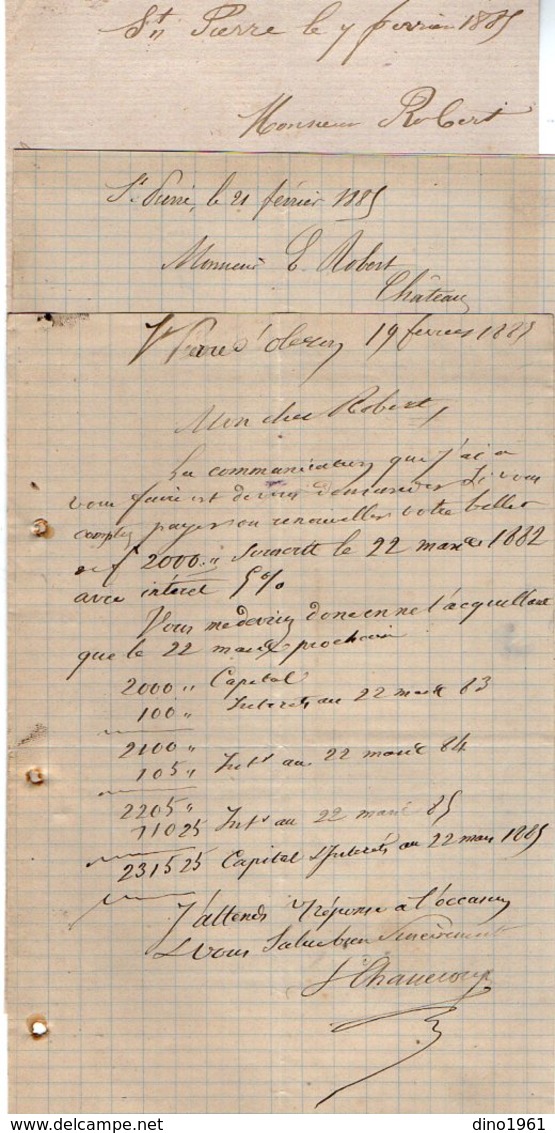 St Pierre le 7 fevrier 1885
Monsieur Robert
St Pierre, le 21 février 1885
Monsieur E. Robert
Château
St Pierre d'Oleron 19 fevrier 1885
Mon cher Robert,
La communication que j'ai a
vous faire est de vous demander si vous
comptez payer ou renouveller votre billet
de f 2000 " souscrit le 22 mars 1882
avec intéret 5%
Vous me devriez donc en ne l'acquittant
que le 22 mars prochain
2000 " Capital
100 " Interets au 22 mars 83
2100 "
105 " Intts au 22 mars 84
2205 "
110 25 Intts au 22 mars 85
2315 25 Capital & Intérêts au 22 mars 1885
J'attends réponse à l'occasion
& vous salue bien sincèrement
dino1961